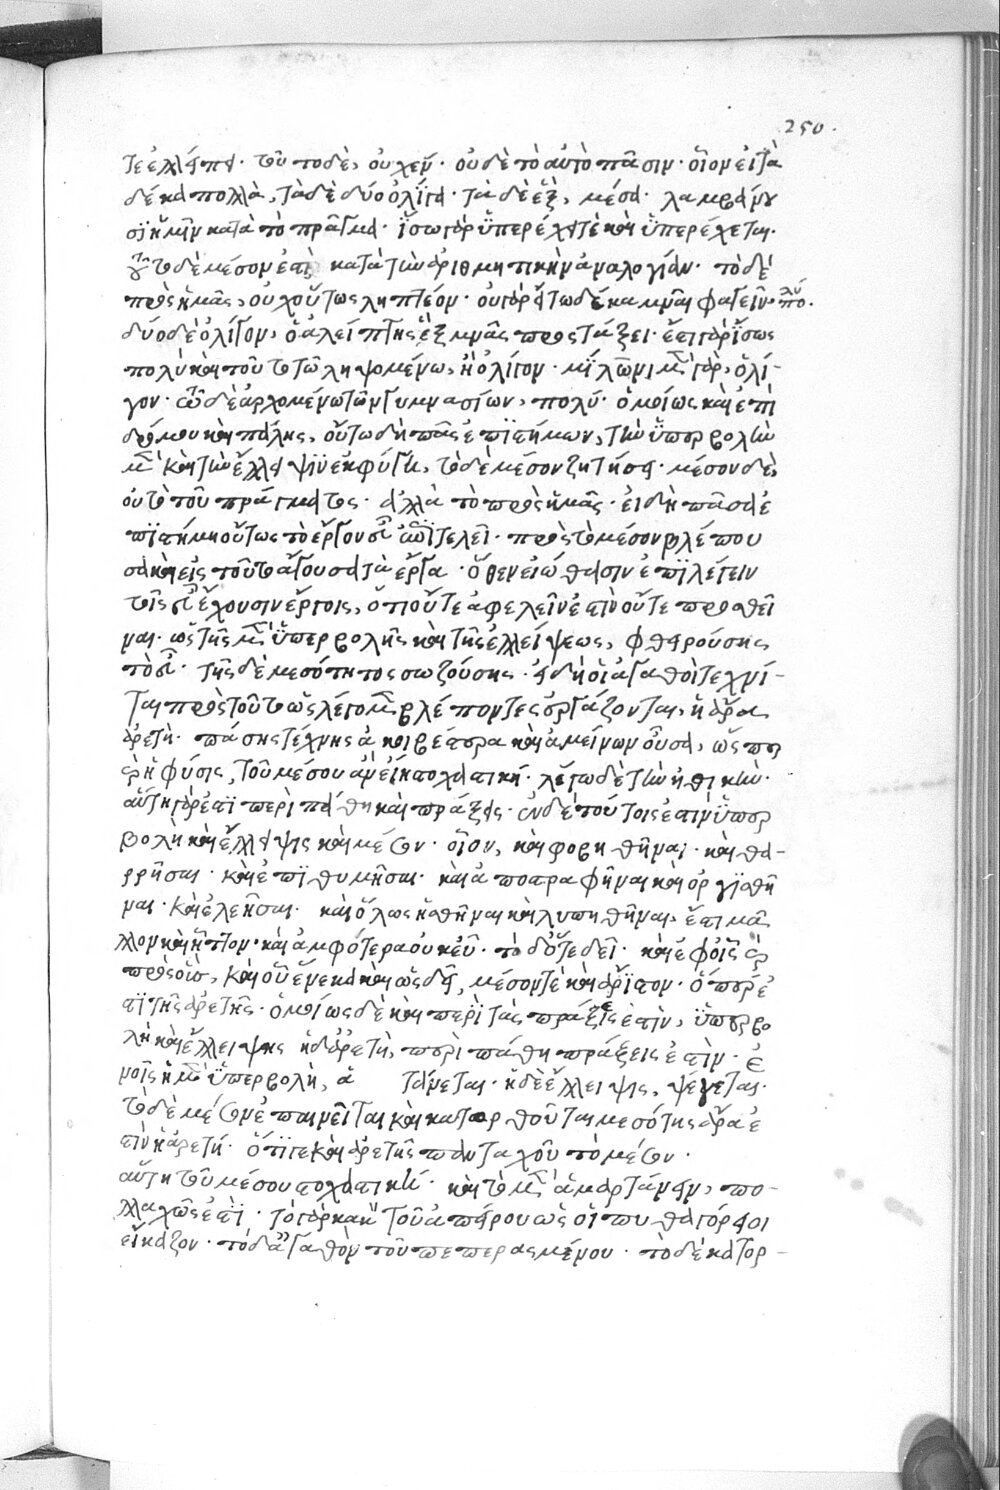 250.
τε ἐλλείπει· τοῦτο δὲ, οὐχ ἕν· οὐδὲ τὸ αὐτὸ πᾶσιν· οἷον εἰ τὰ
δέκα πολλὰ, τὰ δὲ δύο ὀλίγα· τὰ δὲ ἓξ, μέσα· λαμβάνου
σιν κατὰ τὸ πρᾶγμα· ἴσω γὰρ ὑπερέχει τὲ καὶ ὑπερέχεται·
τοῦτο δὲ μέσον ἐστὶ κατὰ τὴν ἀριθμητικὴν ἀναλογίαν· τὸ δὲ
πρὸς ἡμᾶς, οὐχ οὕτως ληπτέον· οὐ γὰρ εἴ τω δέκα μναῖ φαγεῖν· πολύ.
δύο δὲ ὀλίγον, ὁ ἀλείπτης ἓξ μνᾶς προστάξει· ἔστι γὰρ ἴσως
πολὺ καὶ τοῦτο τῶ ληψομένω, ἢ ὀλίγον· μίλωνι μὲν γὰρ, ὀλί-
γον· τῶ δὲ ἀρχομένω τῶν γυμνασίων, πολύ· ὁμοίως καὶ ἐπὶ
δρόμου καὶ πάλης, οὕτω δὴ πᾶς ἐπιστήμων, τὴν ὑπερβολὴν
μὲν καὶ τὴν ἔλλειψιν ἐκφύγει, τὸ δὲ μέσον ζητήσει· μέσον δὲ,
οὐ τὸ τοῦ πράγματος· ἀλλὰ τὸ πρὸς ἡμᾶς· εἰ δὴ πᾶσα ἐ
πιστήμη οὕτως τὸ ἔργον εὖ ἐπιτελεῖ· πρὸς τὸ μέσον βλέπου
σα καὶ εἰς τοῦτο ἄγουσα τὰ ἔργα· ὅθεν εἰώθασιν ἐπιλέγειν
τοῖς εὖ ἔχουσιν ἔργοις, ὅτι οὔτε ἀφελεῖν ἐστὶν οὔτε προσθεῖ
ναι· ὡς τῆς μὲν ὑπερβολῆς καὶ τῆς ἐλλείψεως, φθειρούσης
τὸ εὖ· τῆς δὲ μεσότητος σωζούσης· εἰ δὴ οἱ ἀγαθοὶ τεχνί-
ται πρὸς τοῦτο ὡς λέγομεν βλέποντες ἐργάζονται, ἡ δὲ
ἀρετὴ· πάσης τέχνης ἀκριβέστερα καὶ ἀμείνων οὖσα, ὥσπερ
καὶ ἡ φύσις, τοῦ μέσου ἂν εἴη στοχαστική· λέγω δὲ τὴν ἠθικὴν·
αὕτη γάρ ἐστι περὶ πάθη καὶ πράξεις· ἐν δὲ τούτοις ἐστὶν ὑπερ
βολὴ καὶ ἔλλειψις καὶ μέσον· οἷον, καὶ φοβηθῆναι· καὶ θα-
ρρῆσαι· καὶ ἐπιθυμῆσαι· καὶ ἀποστραφῆναι καὶ ὀργισθῆ
ναι· καὶ ἐλεῆσαι· καὶ ὅλως ἡσθῆναι καὶ λυπηθῆναι, ἔστι μᾶ
λλον καὶ ἧττον· καὶ ἀμφότερα οὐκ εὖ· τὸ δ' ὅτε δεῖ· καὶ ἐφ' οἷς καὶ
πρὸς οὓς, καὶ οὗ ἕνεκα καὶ ὡς δεῖ, μέσον τὲ καὶ ἄριστον· ὅπερ ἐ
στὶ τῆς ἀρετῆς· ὁμοίως δὲ καὶ περὶ τὰς πράξεις ἐστὶν, ὑπερβο
λὴ καὶ ἔλλειψις ἡ δ' ἀρετὴ, περὶ πάθη πράξεις ἐστὶν· ἐ
νοῖς ἡ μὲν ὑπερβολὴ, ἁ τάνεται· ἡ δὲ ἔλλειψις, ψέγεται·
τὸ δὲ μέσον ἐπαινεῖται καὶ κατορθοῦται μεσότης ἄρα ἐ
στὶν ἡ ἀρετή· ὅτι γε καὶ ἀρετῆς πανταχοῦ τὸ μέσον·
αὕτη τοῦ μέσου στοχαστική· καὶ τὸ μὲν ἁμαρτάνειν, πο-
λλαχῶς ἐστὶ· τὸ γὰρ κακὸν τοῦ ἀπείρου ὡς οἱ πυθαγόρειοι
εἴκαζον· τὸ δ' ἀγαθὸν τοῦ πεπερασμένου· τὸ δὲ κατορ-